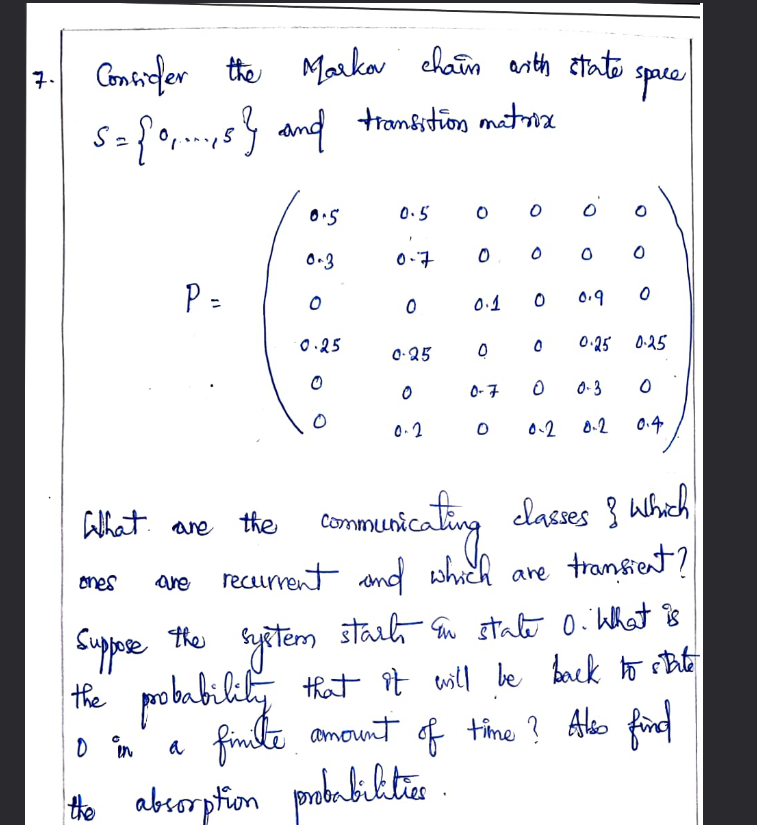 7. Consider the Markov chain with state space
S = {0,...,5} and transition matrix
0.5 0.5 0 0 0 0
0.3 0.7 0 0 0 0
P = 0 0 0.1 0 0.9 0
0.25 0.25 0 0 0.25 0.25
0 0 0.7 0 0.3 0
0 0.2 0 0.2 0.2 0.4
What are the communicating classes & which
ones are recurrent and which are transient?
Suppose the system starts in state 0. What is
the probability that it will be back to state
0 in a finite amount of time? Also find
the absorption probabilities.